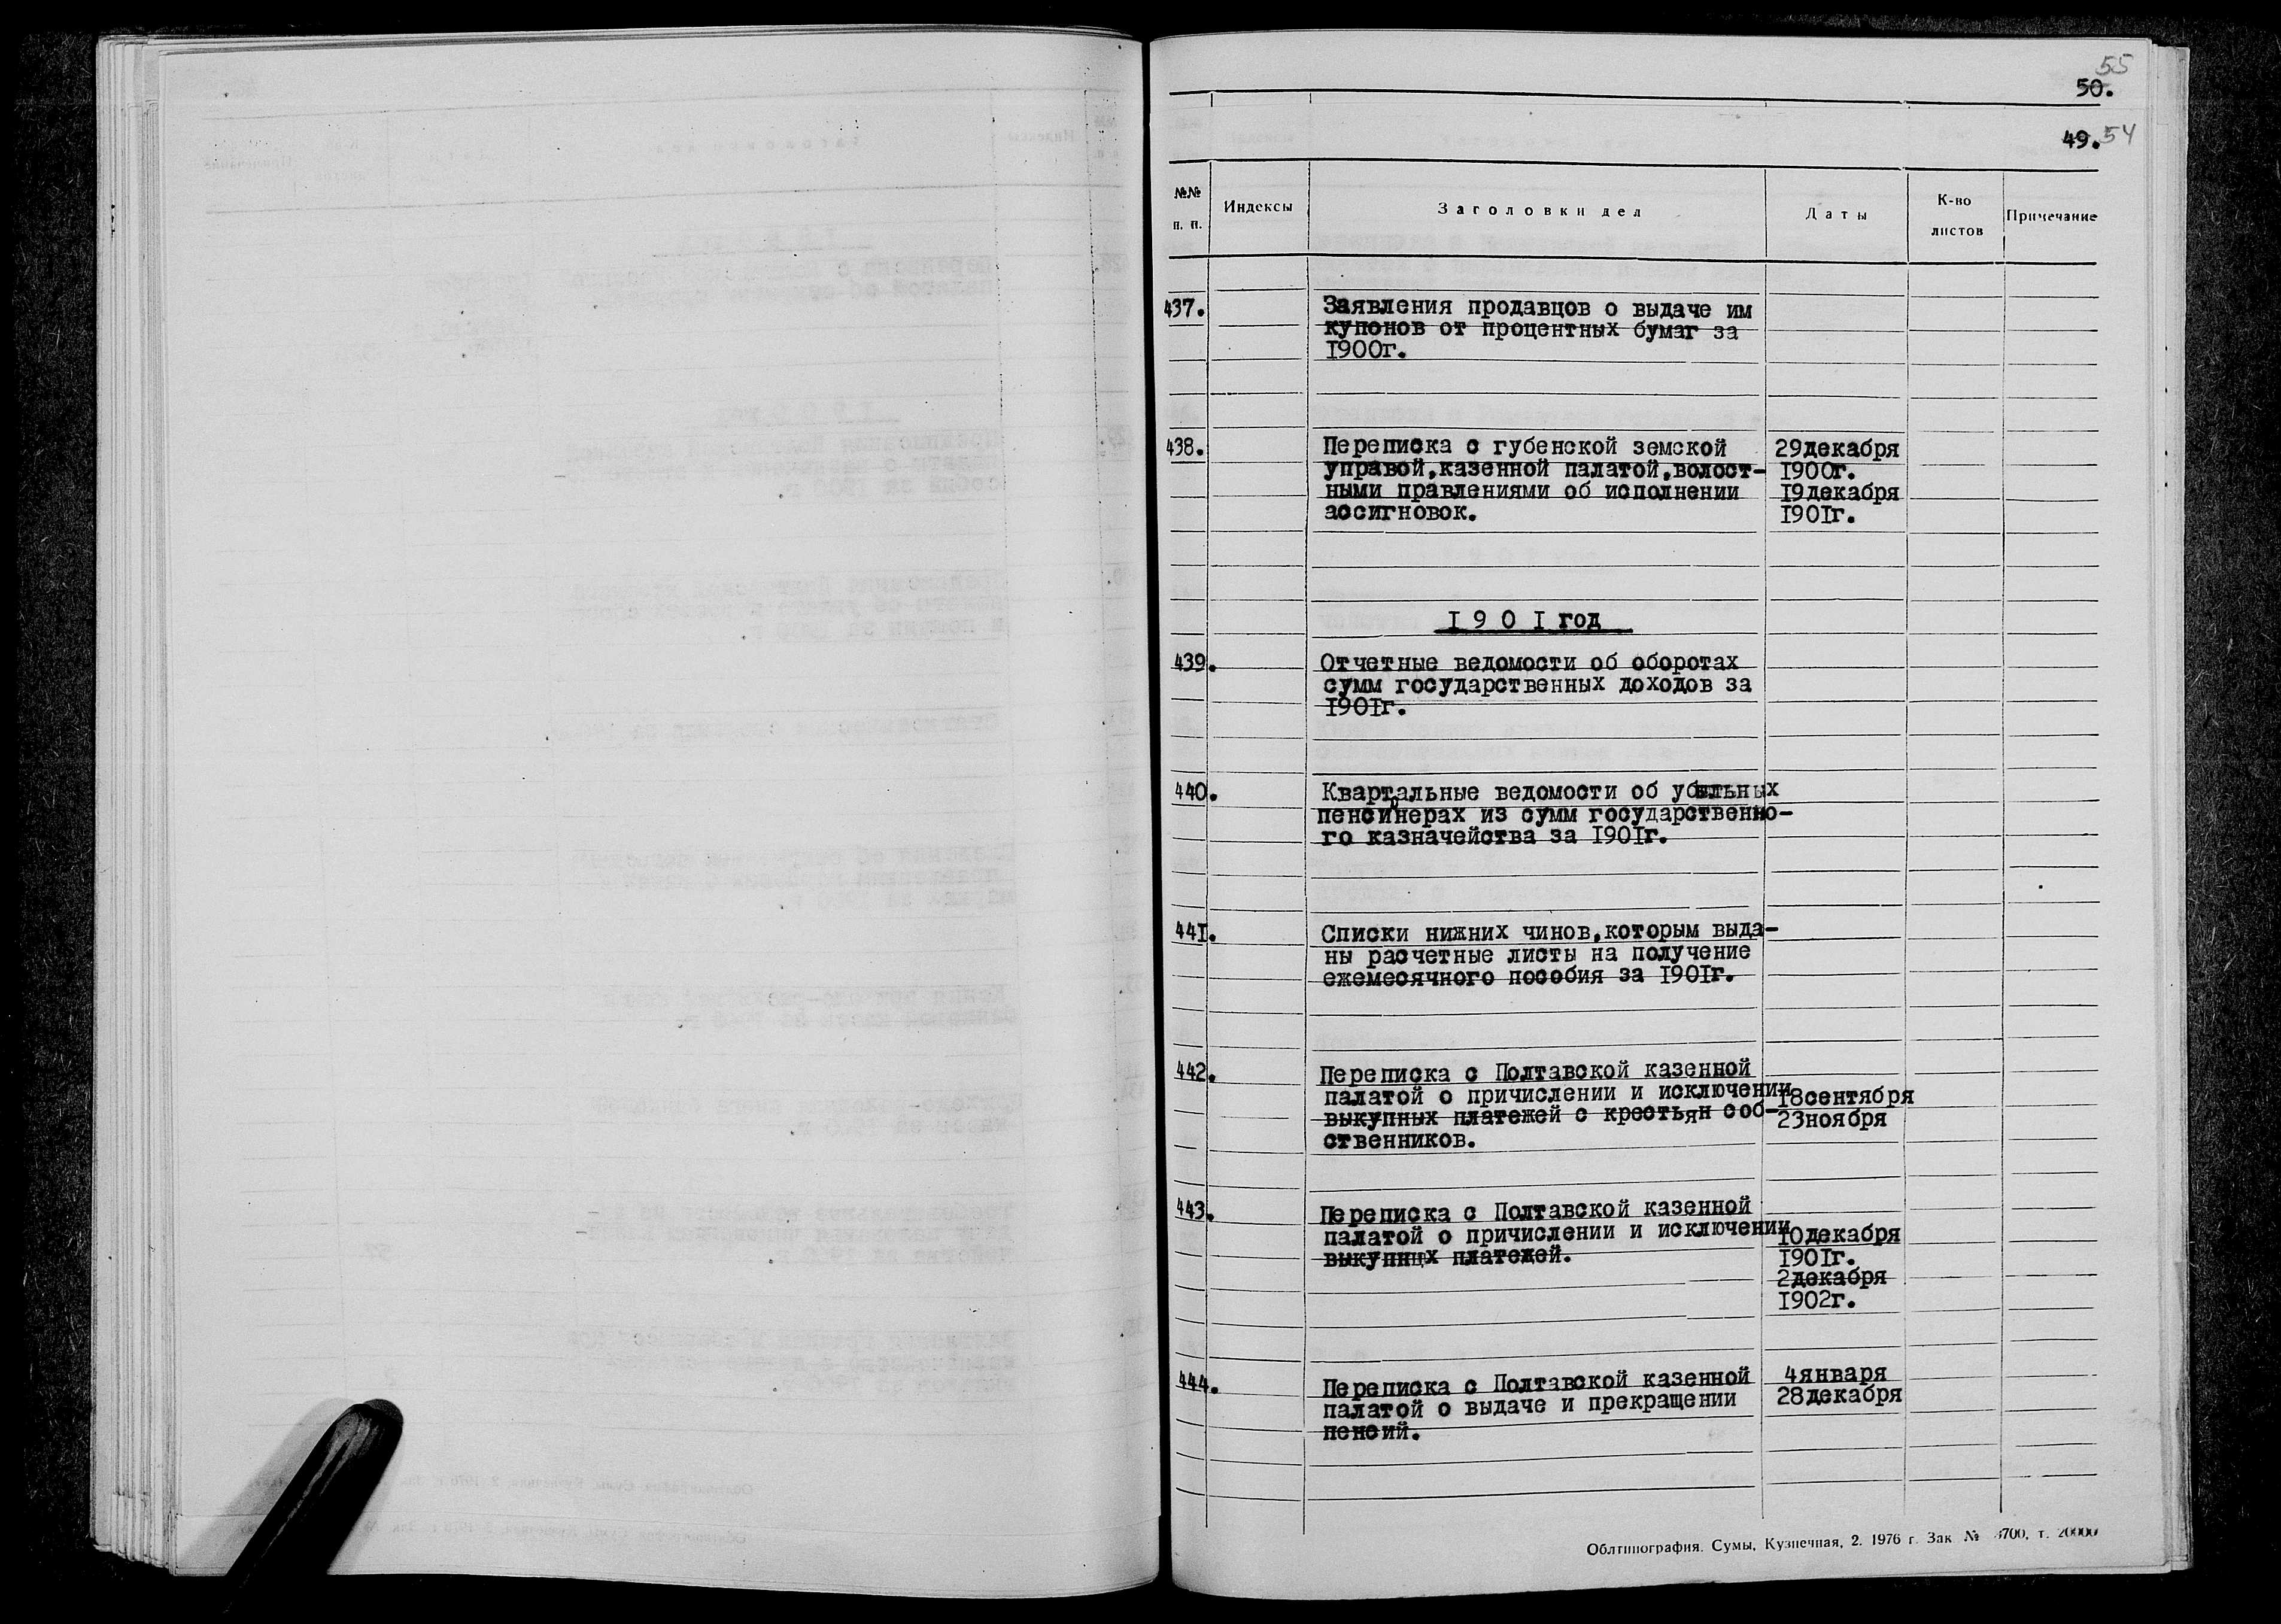 55
50.
49. 54
№№ п. п.
Индексы
Заголовки дел
Даты
К-во листов
Примечание
437.
Заявления продавцов о выдаче им
купонов от процентных бумаг за
1900г.
438.
Переписка с губенской земской
управой,казенной палатой,волост-
ными правлениями об исполнении
ассигновок.
29декабря
1900г.
19декабря
1901г.
1901 год
439.
Отчетные ведомости об оборотах
сумм государственных доходов за
1901г.
440.
Квартальные ведомости об убыльных
пенсионерах из сумм государственно-
го казначейства за 1901г.
441.
Списки нижних чинов,которым выда-
ны расчетные листы на получение
ежемесячного пособия за 1901г.
442.
Переписка с Полтавской казенной
палатой о причислении и исключении
выкупных платежей с крестьян соб-
ственников.
18сентября
23ноября
443.
Переписка с Полтавской казенной
палатой о причислении и исключении
выкупных платежей.
10декабря
1901г.
2декабря
1902г.
444.
Переписка с Полтавской казенной
палатой о выдаче и прекращении
пенсий.
4января
28декабря
Облтипография. Сумы, Кузнечная, 2. 1976 г. Зак № 3700, т. 20000